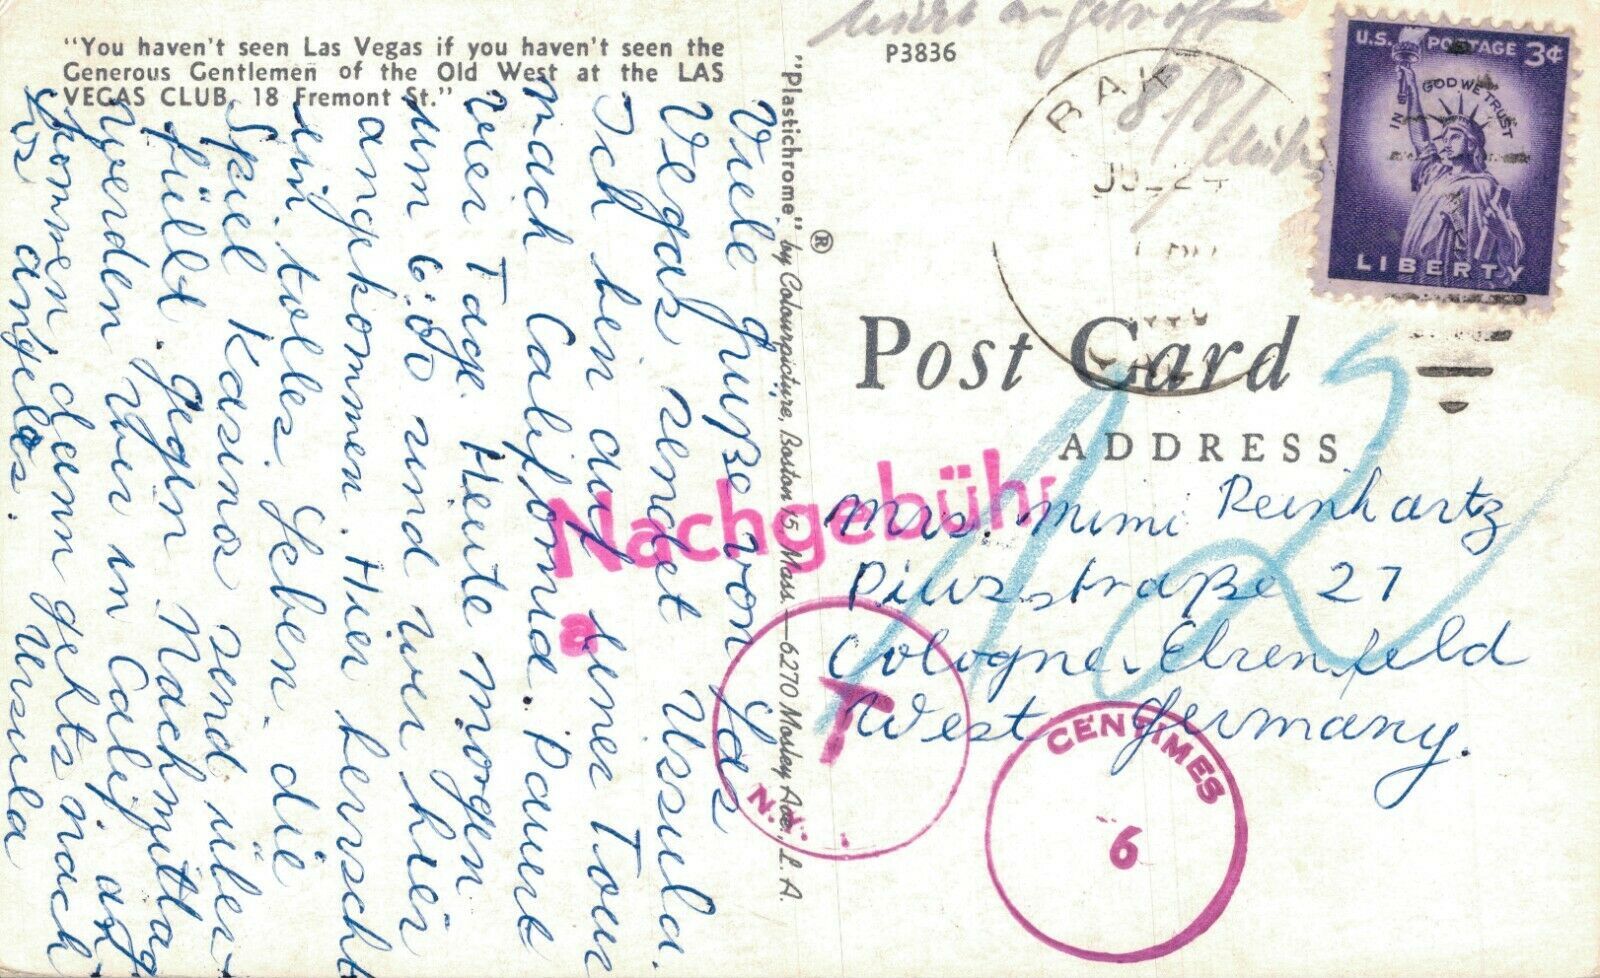 "You haven't seen Las Vegas if you haven't seen the
Generous Gentlemen of the Old West at the LAS
VEGAS CLUB, 18 Fremont St."
Viele Grüße von Las
Vegas sendet Ursula.
Ich bin auf einer Tour
nach California. Dauert
vier Tage. Heute morgen
um 6:00 sind wir hier
angekommen. Hier herrscht
ein tolles Leben. die
Spiel Kasinos sind über-
füllt. gegen Nachmittag
werden wir in California an-
kommen dann gehts nach
Los Angelos. Ursula
"Plastichrome" ® by Colourpicture, Boston 15, Mass.—6270 Mosley Ave., L. A.
P3836
BAK
JUL 24
U.S. POSTAGE 3¢
IN GOD WE TRUST
LIBERTY
Post Card
ADDRESS
Nachgebühr
a
T
N.Y.
CENTIMES
6
Mrs. Mimi Reinhartz
Piusstraße 27
Cologne-Ehrenfeld
West Germany.